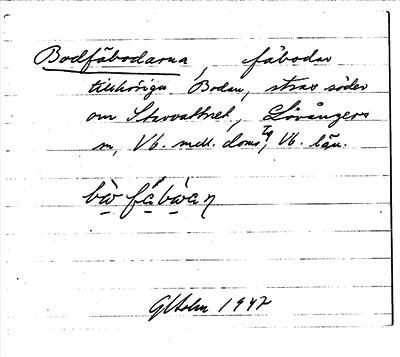 Bodfäbodarna, fäbodar
tillhöriga Bodan, strax söder
om Storvattnet, Lövångers
sn, Vb. mell. doms, Vb. län.
GHolm 1947